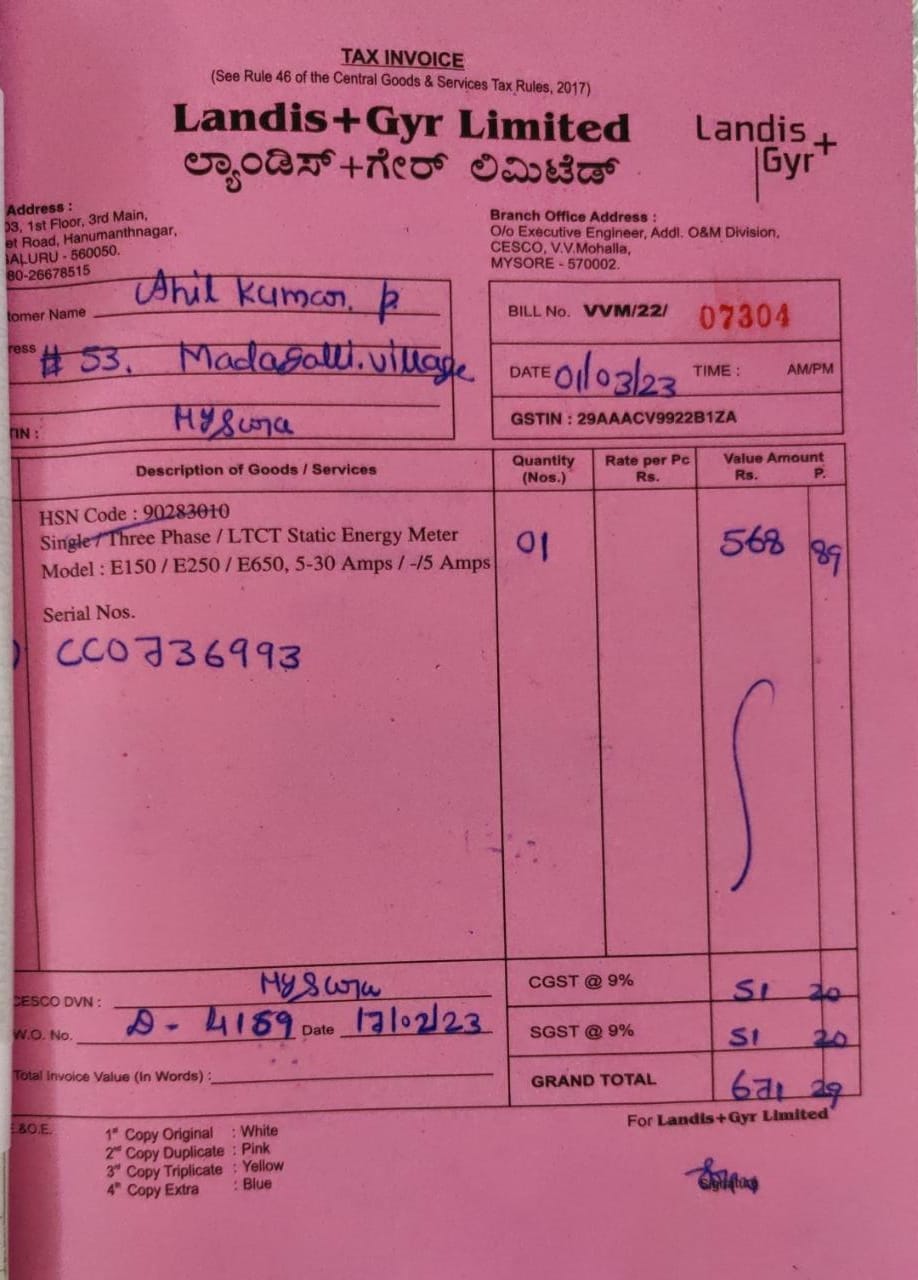 TAX INVOICE
(See Rule 46 of the Central Goods & Services Tax Rules, 2017)
Landis+Gyr Limited
ಲ್ಯಾಂಡಿಸ್+ಗೇರ್ ಲಿಮಿಟೆಡ್
Landis+
Gyr
Address :
03, 1st Floor, 3rd Main,
et Road, Hanumanthnagar,
ALURU - 560050.
80-26678515
Branch Office Address :
O/o Executive Engineer, Addl. O&M Division,
CESCO, V.V.Mohalla,
MYSORE - 570002.
tomer Name Anil Kumar. P
ress # 53. Madagalli. village
Mysuru
TIN :
BILL No. VVM/22/ 07304
DATE 01/03/23 TIME : AM/PM
GSTIN : 29AAACV9922B1ZA
Description of Goods / Services Quantity (Nos.) Rate per Pc Rs. Value Amount Rs. P.
HSN Code : 90283010
Single / Three Phase / LTCT Static Energy Meter 01 568 89
Model : E150 / E250 / E650, 5-30 Amps / -/5 Amps
Serial Nos.
CC0736993
CESCO DVN : Mysuru
W.O. No. D - 4159 Date 17/02/23
Total Invoice Value (In Words) :
CGST @ 9% 51 20
SGST @ 9% 51 20
GRAND TOTAL 671 29
E.&O.E.
1st Copy Original : White
2nd Copy Duplicate : Pink
3rd Copy Triplicate : Yellow
4th Copy Extra : Blue
For Landis+Gyr Limited
Signatory